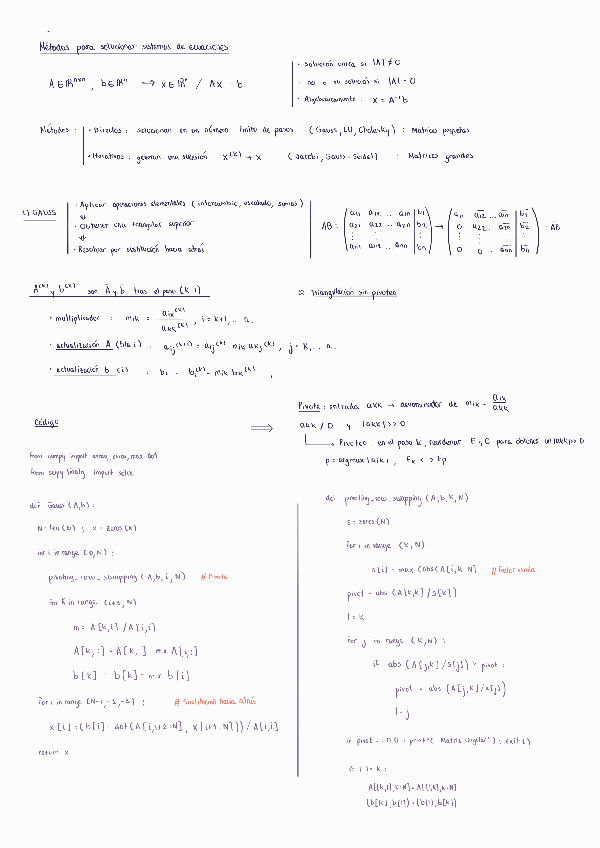 Métodos para solucionar sistemas de ecuaciones
A ∈ ℝⁿˣⁿ , b ∈ ℝⁿ → x ∈ ℝⁿ / Ax = b
· Solución única si |A| ≠ 0
· no o ∞ solución si |A| = 0
· Algebraicamente : x = A⁻¹b
Métodos :
· Directos : solucionan en un número finito de pasos ( Gauss, LU, Cholesky ) : Matrices pequeñas
· Iterativos : generan una sucesión x⁽ᵏ⁾ → x ( Jacobi, Gauss-Seidel ) : Matrices grandes
1) GAUSS
· Aplicar operaciones elementales ( intercambio, escalado, sumas )
· Obtener una triangular superior
· Resolver por sustitución hacia atrás
AB = ( a11 a12 ... a1n | b1 ) → ( a11 a12 ... a1n | b1 ) = AB
a21 a22 ... a2n | b2 0 a22 ... a2n | b2
an1 an2 ... ann | bn 0 0 ... ann | bn
A⁽ᵏ⁾ y b⁽ᵏ⁾ son A y b tras el paso (k-1)
≈ Triangulación sin pivoteo
· multiplicador : mik = aik⁽ᵏ⁾ / akk⁽ᵏ⁾ , i = k+1, ... n.
· actualización A : aij⁽ᵏ⁺¹⁾ = aij⁽ᵏ⁾ - mik akj⁽ᵏ⁾ , j = k, ... n.
· actualización b (i) : bi = bi⁽ᵏ⁾ - mik bk⁽ᵏ⁾
Código
⟹
Pivote : entrada akk → denominador de mik = aik / akk
akk ≠ 0 y |akk| >> 0
Pivoteo en el paso k, reordenar F y C para obtener un |akk| >> 0
p = argmax |aik| , Fk <-> Fp
from numpy import array, zeros, max, dot
from scipy.linalg import solve
def Gauss (A,b) :
N = len (b) ; x = zeros (N)
for i in range (0,N) :
pivoting_row_swapping (A, b, i, N) # Pivote
for k in range (i+1, N)
m = A[k,i] / A[i,i]
A[k,:] = A[k,:] - m * A[i,:]
b[k] = b[k] - m * b[i]
for i in range (N-1, -1, -1) : # Sustitución hacia atrás
x[i] = (b[i] - dot(A[i,i+1:N], x[i+1:N])) / A[i,i]
return x
def pivoting_row_swapping (A, b, k, N)
s = zeros (N)
for i in range (k, N)
s[i] = max (abs(A[i,k:N] # Factor escala
pivot = abs (A[k,k] / s[k])
l = k
for j in range (k,N) :
if abs (A[j,k] / s[j]) > pivot :
pivot = abs (A[j,k] / s[j])
l = j
if pivot == 0.0 : print ( " Matriz singular " ) ; exit ( )
if l != k :